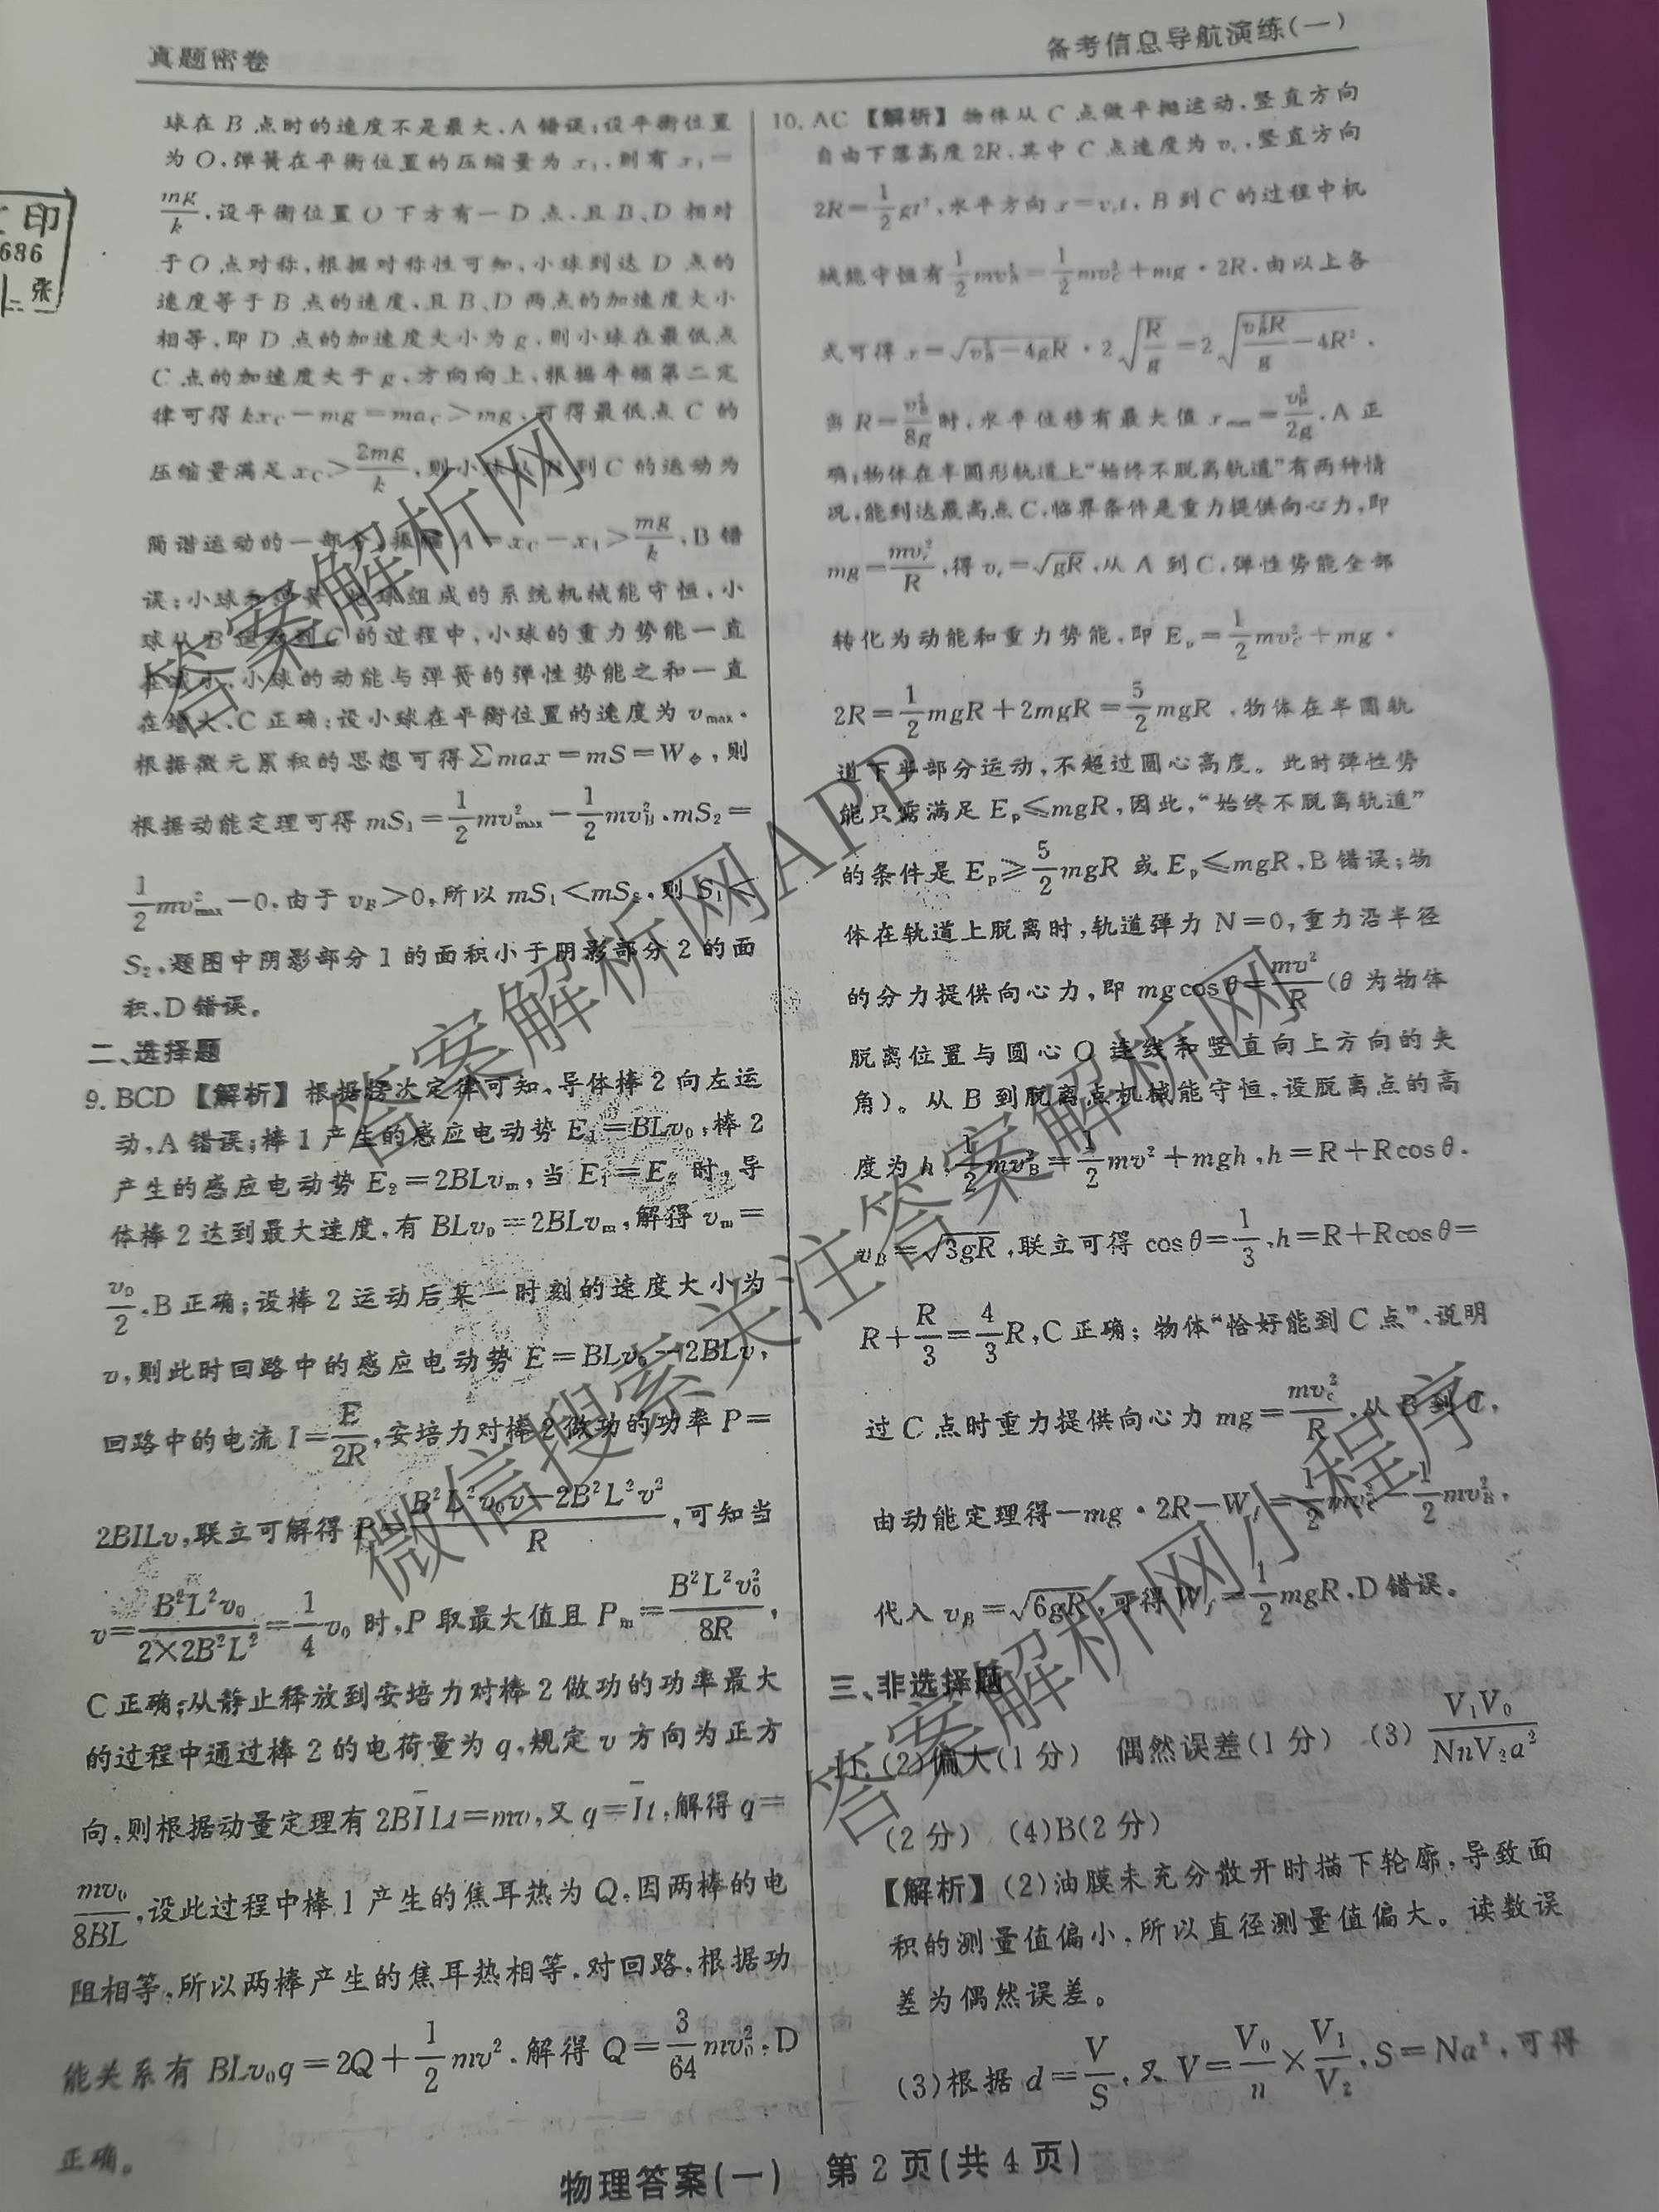 真题密卷
备考信息导航演练(一)
印
686
张
球在 B 点时的速度不是最大,A 错误;设平衡位置
为 O,弹簧在平衡位置的压缩量为 x₁,则有 x₁=
mg/k,设平衡位置 O 下方有一 D 点,且 B、D 相对
于 O 点对称,根据对称性可知,小球到达 D 点的
速度等于 B 点的速度,且 B、D 两点的加速度大小
相等,即 D 点的加速度大小为 g,则小球在最低点
C 点的加速度大于 g,方向向上,根据牛顿第二定
律可得 kx_C-mg=ma_C>mg,可得最低点 C 的
压缩量满足 x_C>2mg/k,则小球从 B 到 C 的运动为
简谐运动的一部分,振幅 A=x_C-x₁>mg/k,B 错
误;小球和弹簧、地球组成的系统机械能守恒,小
球从 B 运动到 C 的过程中,小球的重力势能一直
在减小,小球的动能与弹簧的弹性势能之和一直
在增大,C 正确;设小球在平衡位置的速度为 v_max,
根据微元累积的思想可得∑max=mS=W合,则
根据动能定理可得 mS₁=1/2 mv²_max-1/2 mv²_B,mS₂=
1/2 mv²_max-0,由于 v_B>0,所以 mS₁<mS₂,则 S₁<
S₂,题图中阴影部分 1 的面积小于阴影部分 2 的面
积,D 错误。
二、选择题
9. BCD 【解析】根据楞次定律可知,导体棒 2 向左运
动,A 错误;棒 1 产生的感应电动势 E₁=BLv₀,棒 2
产生的感应电动势 E₂=2BLv_m,当 E₁=E₂ 时,导
体棒 2 达到最大速度,有 BLv₀=2BLv_m,解得 v_m=
v₀/2,B 正确;设棒 2 运动后某一时刻的速度大小为
v,则此时回路中的感应电动势 E=BLv₀-2BLv,
回路中的电流 I=E/2R,安培力对棒 2 做功的功率 P=
2BILv,联立可解得 P=(B²L²v₀v-2B²L²v²)/R,可知当
v=B²L²v₀/(2×2B²L²)=1/4 v₀ 时,P 取最大值且 P_m=B²L²v₀²/8R,
C 正确;从静止释放到安培力对棒 2 做功的功率最大
的过程中通过棒 2 的电荷量为 q,规定 v 方向为正方
向,则根据动量定理有 2BĪLt=mv,又 q=Īt,解得 q=
mv₀/8BL,设此过程中棒 1 产生的焦耳热为 Q,因两棒的电
阻相等,所以两棒产生的焦耳热相等,对回路,根据功
能关系有 BLv₀q=2Q+1/2 mv²,解得 Q=3/64 mv₀²,D
正确。
10. AC 【解析】物体从 C 点做平抛运动,竖直方向
自由下落高度 2R,其中 C 点速度为 v_c,竖直方向
2R=1/2 gt²,水平方向 x=v_c t,B 到 C 的过程中机
械能守恒有 1/2 mv²_B=1/2 mv²_C+mg·2R,由以上各
式可得 x=√(v²_B-4gR)·2√(R/g)=2√(v²_B R/g-4R²),
当 R=v²_B/8g 时,水平位移有最大值 x_max=v²_B/2g,A 正
确;物体在半圆形轨道上“始终不脱离轨道”有两种情
况,能到达最高点 C,临界条件是重力提供向心力,即
mg=mv_c²/R,得 v_c=√(gR),从 A 到 C,弹性势能全部
转化为动能和重力势能,即 E_p=1/2 mv²_C+mg·
2R=1/2 mgR+2mgR=5/2 mgR,物体在半圆轨
道下半部分运动,不超过圆心高度。此时弹性势
能只需满足 E_p≤mgR,因此,“始终不脱离轨道”
的条件是 E_p≥5/2 mgR 或 E_p≤mgR,B 错误;物
体在轨道上脱离时,轨道弹力 N=0,重力沿半径
的分力提供向心力,即 mgcosθ=mv²/R(θ 为物体
脱离位置与圆心 O 连线和竖直向上方向的夹
角)。从 B 到脱离点机械能守恒,设脱离点的高
度为 h,1/2 mv²_B=1/2 mv²+mgh,h=R+Rcosθ,
v_B=√(3gR),联立可得 cosθ=1/3,h=R+Rcosθ=
R+R/3=4/3 R,C 正确;物体“恰好能到 C 点”,说明
过 C 点时重力提供向心力 mg=mv_c²/R,从 B 到 C,
由动能定理得-mg·2R-W_f=1/2 mv²_C-1/2 mv²_B,
代入 v_B=√(6gR),可得 W_f=1/2 mgR,D 错误。
三、非选择题
11. (2)偏大(1 分) 偶然误差(1 分) (3) V₁V₀/(NnV₂a²)
(2 分) (4)B(2 分)
【解析】(2)油膜未充分散开时描下轮廓,导致面
积的测量值偏小,所以直径测量值偏大。读数误
差为偶然误差。
(3)根据 d=V/S,又 V=V₀/n×V₁/V₂,S=Na²,可得
物理答案(一) 第 2 页(共 4 页)
答案解析网
答案解析网APP
微信搜索关注答案解析网
答案解析网小程序